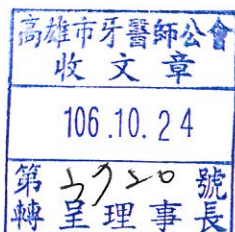 高雄市牙醫師公會
收文章
106.10.24
第 3920 號
轉呈理事長